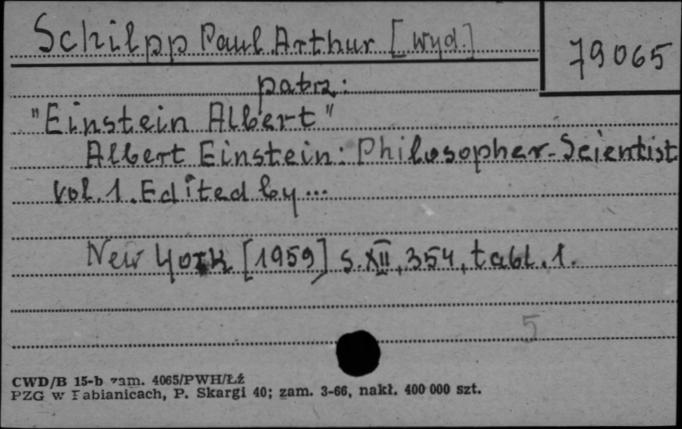 Schilpp Paul Arthur [wyd.]
79065
patrz:
"Einstein Albert"
Albert Einstein: Philosopher-Scientist
Vol. 1. Edited by ...
New York [1959] s. XII, 354, tabl. 1.
5
CWD/B 15-b zam. 4065/PWH/Łź
PZG w Pabianicach, P. Skargi 40; zam. 3-66, nakł. 400 000 szt.